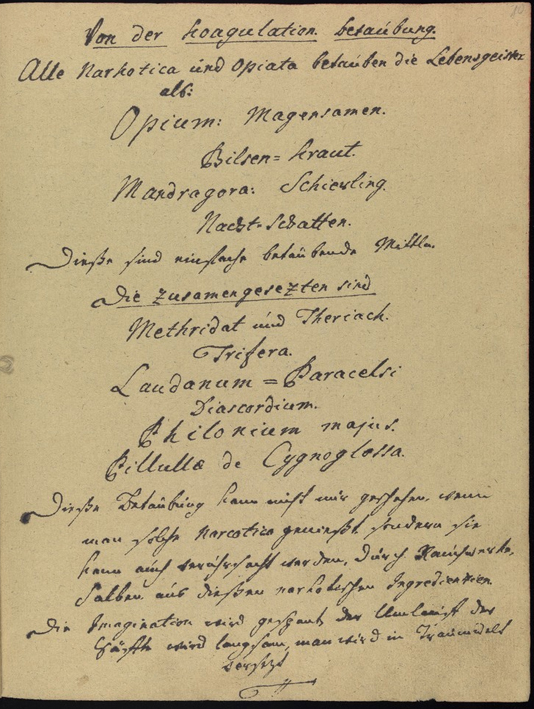 Von der Koagulation betaubung.
Alle Narkotica und Opiata betauben die Lebensgeister
als:
Opium: Magensamen.
Bilsen=Kraut.
Mandragora: Schierling.
Nacht=Schatten.
Dieße sind einfache betaubende Mittl.
Die zusamengesezten sind
Methridat und Theriach.
Trifera.
Laudanum = Paracelsi
Diascordium.
Philonium majus.
Pillullæ de Cygnoglossa.
Dieße Betaubung kann nicht nur geschehen, wenn
man solche Narcotica genießt sondern sie
kann auch verursacht werden, durch Rauchwerke,
Salben aus dießen narkotischen Ingredienzien
Die Imagination wird gespant der Umlauf der
Säffte wird langsam, man wird in
versezt